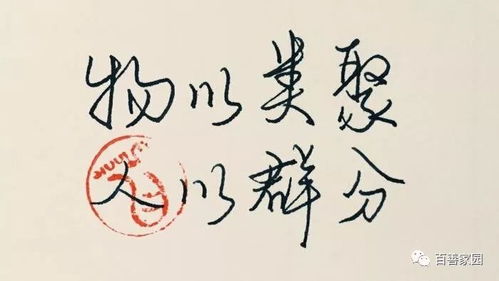 物以类聚
人以群分
百善家园